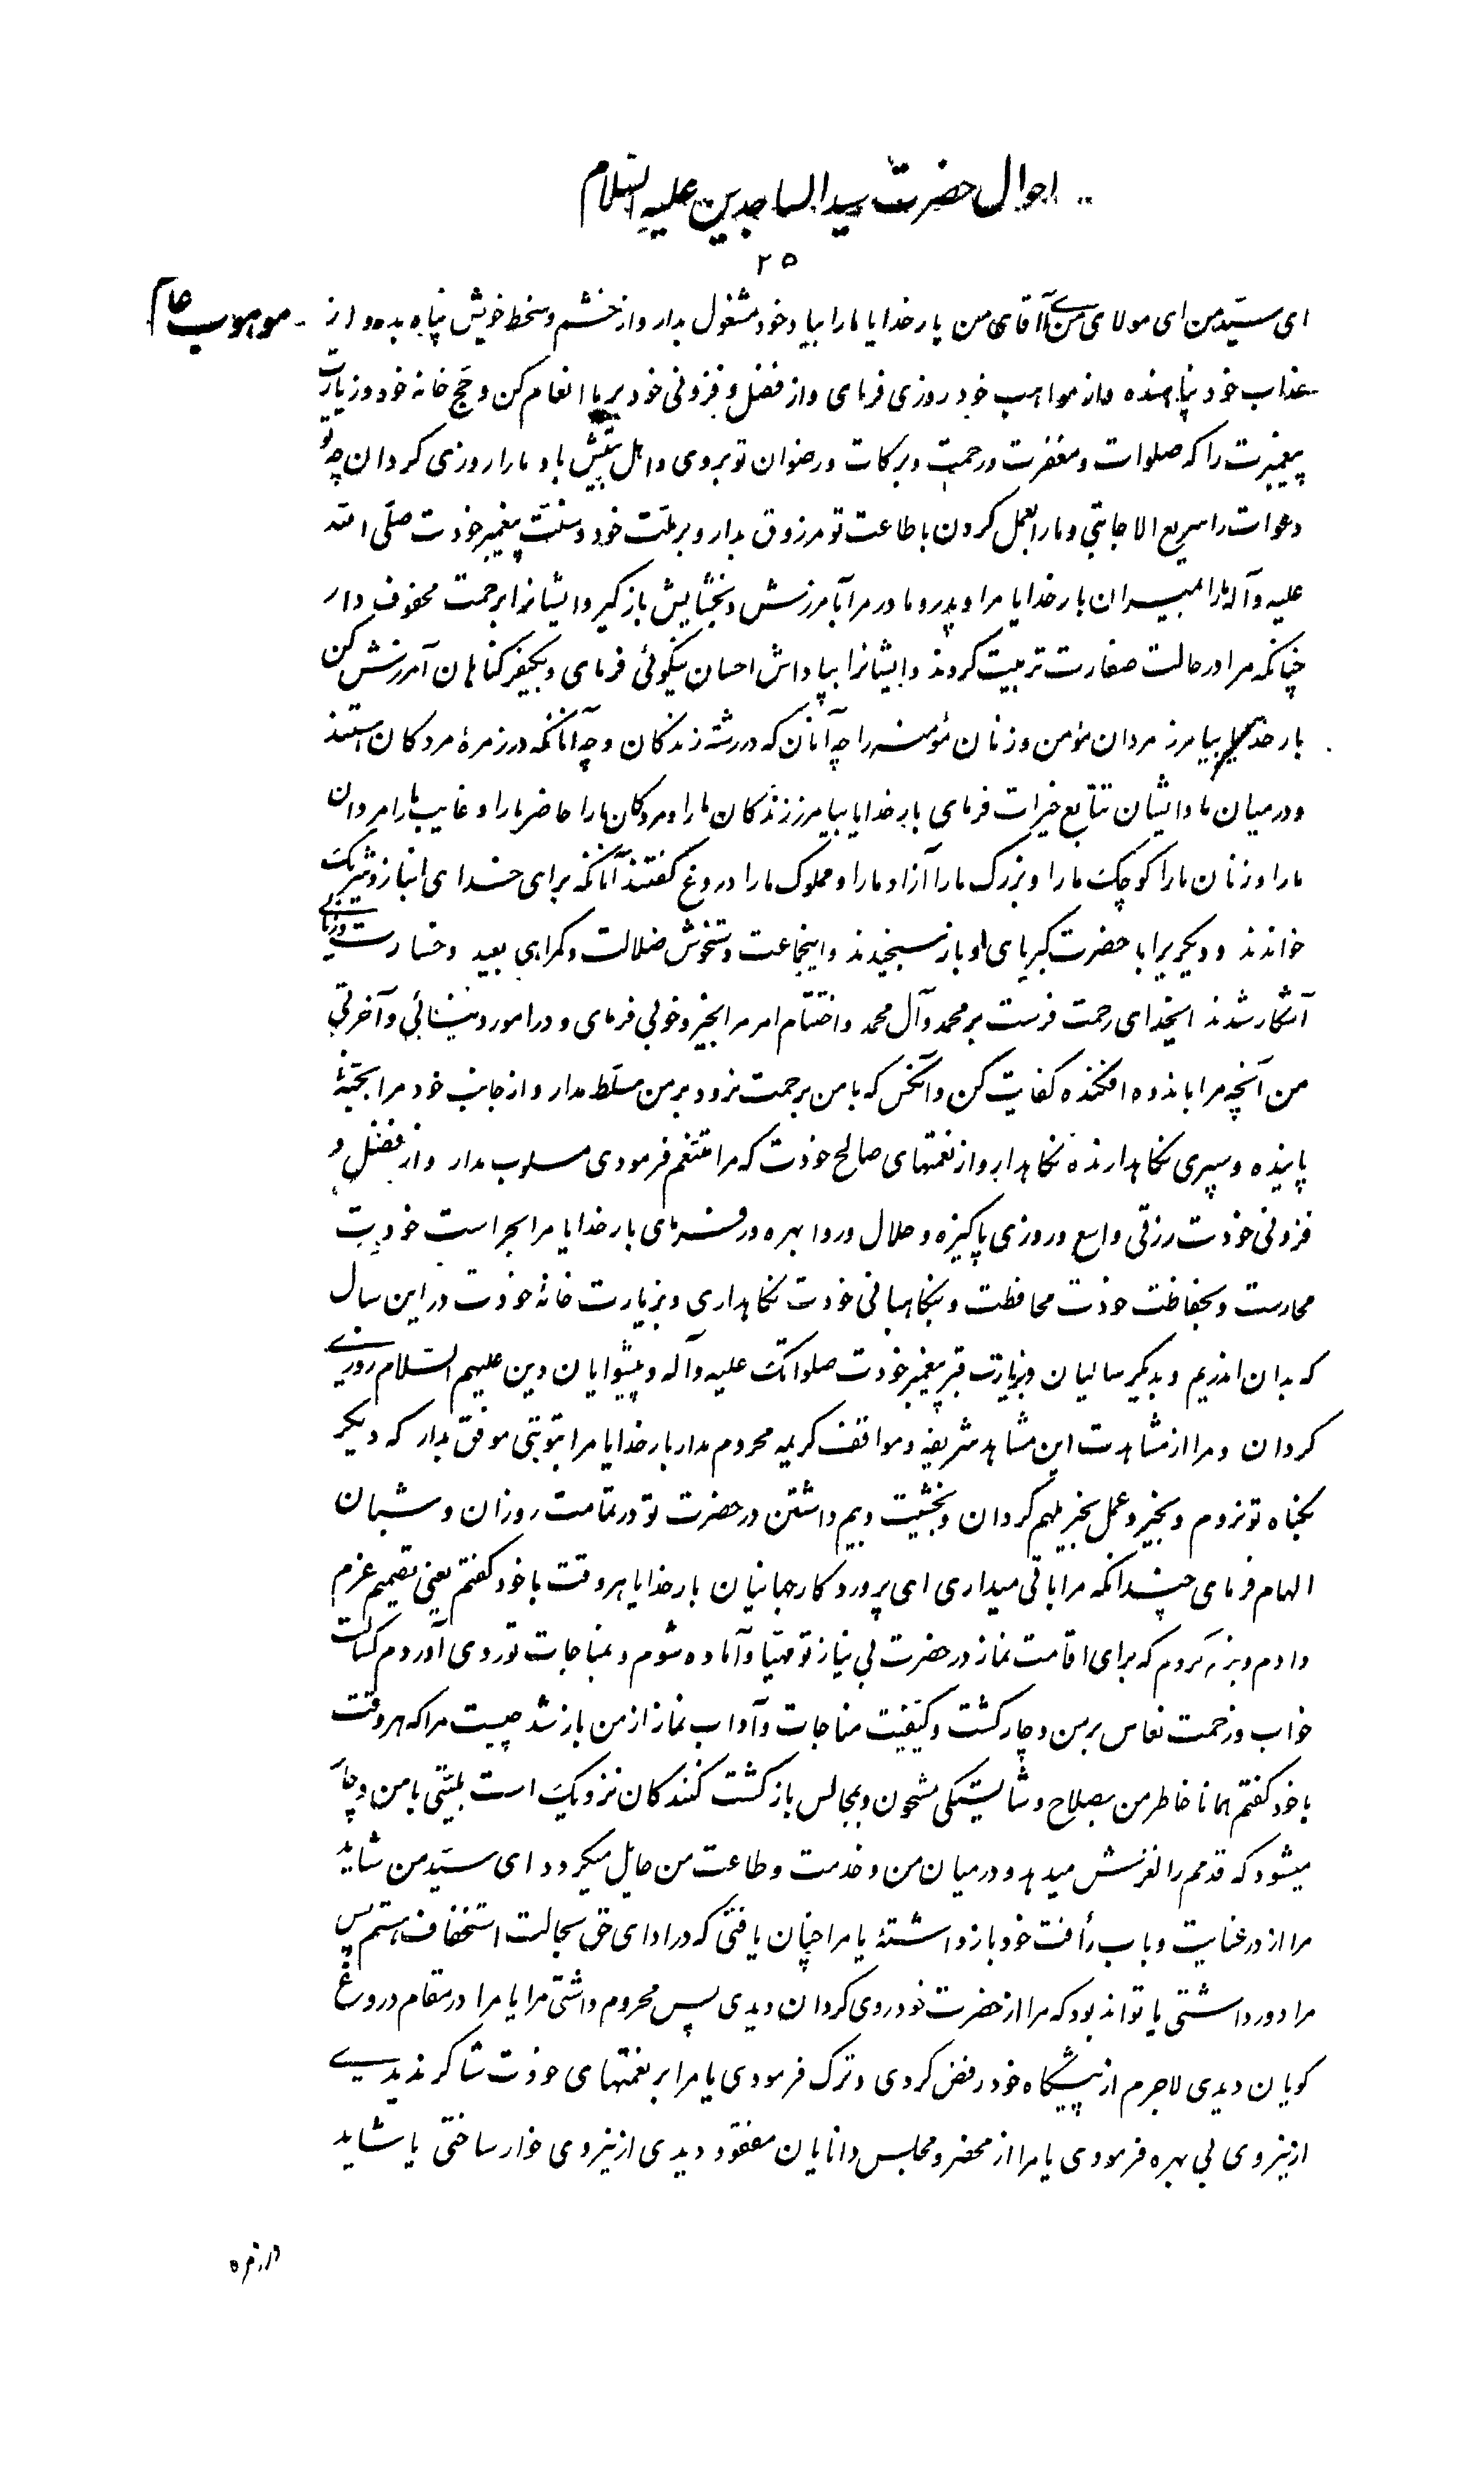 احوال حضرت سید الساجدین علیه السّلام
۲۵
ای سیّد من ای مولای من ای آقای من بار خدایا ما را بیاد خود مشغول بدار و از خشم و سخط خویش پناه بده و از
عذاب خود پناهنده و از مواهب خود روزی فرمای و از فضل و فزونی خود بر ما انعام کن و حج خانه خود و زیارت
پیغمبرت را که صلوات و مغفرت و رحمت و برکات و رضوان تو بروی و اهل بیتش باد ما را روزی گردان چه تو
دعوات را سریع الاجابتی و ما را بعمل کردن باطاعت تو مرزوق بدار و بر ملّت خود و سنّت پیغمبر خودت صلّی الله
علیه و آله ما را بمیران بار خدایا مرا و پدر و مادر مرا بآمرزش و بخشایش بازگیر و ایشانرا برحمت محفوف دار
چنانکه مرا در حالت صغارت تربیت کردند و ایشانرا بپاداش احسان نیکوئی فرمای و بکیفر گناهان آمرزش کن
بار خدایا بیامرز مردان مؤمن و زنان مؤمنه را چه آنان که در رشته زندگان و چه آنانکه در زمرهٔ مردگان هستند
و در میان ما و ایشان تتابع خیرات فرمای بار خدایا بیامرز زندگان ما را و مردگان ما را حاضر ما را و غایب ما را مردان
ما را و زنان ما را کوچک ما را و بزرگ ما را آزاد ما را و مملوک ما را دروغ گفتند آنانکه برای خدای انباز و شریک
خواندند و دیگریرا با حضرت کبریای او باز سنجیدند و اینجماعت دستخوش ضلالت و گمراهی بعید و خسارت و زیانی
آشکار شدند ایخدای رحمت فرست بر محمد و آل محمد و اختتام امر مرا بخیر و خوبی فرمای و در امور دنیائی و آخرتی
من آنچه مرا باندوه افکنده کفایت کن و آنکس که با من برحمت نرود بر من مسلّط مدار و از جانب خود مرا بجنّهٔ
پاینده و سپری نگاهدارنده نگاهدار و از نعمتهای صالح خودت که مرا متنعّم فرمودی مسلوب مدار و از فضل و
فزونی خودت رزقی واسع و روزی پاکیزه و حلال و روا بهره ور فرمای بار خدایا مرا بحراست خودت
محارست و بحفاظت خودت محافظت و بنگاهبانی خودت نگاهداری و بزیارت خانهٔ خودت در این سال
که بدان اندریم و بدیگر سالیان و بزیارت قبر پیغمبر خودت صلواتک علیه و آله و پیشوایان دین علیهم السّلام روزی
گردان و مرا از مشاهدت این مشاهد شریفه و مواقف کریمه محروم مدار بار خدایا مرا بتوبتی موفق بدار که دیگر
بگناه تو نروم و بخیر و عمل بخیر ملهم گردان و بخشیت و بیم داشتن در حضرت تو در تمامت روزان و شبان
الهام فرمای چندانکه مرا باقی میداری ای پروردگار جهانیان بار خدایا هر وقت با خود گفتم یعنی تصمیم عزم
دادم و بر نه کردم که برای اقامت نماز در حضرت بی نیاز تو مهیّا و آماده شوم و بمناجات تو روی آوردم کسالت
خواب و زحمت نعاس بر من دچار گشت و کیفیّت مناجات و آداب نماز از من باز شد چیست مرا که هر وقت
با خود گفتم همانا خاطر من بصلاح و شایستگی مشحون و بمجالس بازگشت کنندگان نزدیک است بلیّتی با من دچار
میشود که قدمم را لغزش میدهد و در میان من و خدمت و طاعت من حایل میگردد ای سیّد من شاید
مرا از در عنایت و باب رأفت خود باز داشتهٔ یا مرا چنان یافتی که در ادای حق بحالت استخفاف هستم پس
مرا دور داشتی یا تواند بود که مرا از حضرت خود روی گردان دیدی پس محروم داشتی مرا یا مرا در مقام دروغ
گویان دیدی لاجرم از پیشگاه خود رفض کردی و ترک فرمودی یا مرا بر نعمتهای خودت شاکر ندیدی
ازینروی بی بهره فرمودی یا مرا از محضر و مجلس دانایان مفقود دیدی ازینروی خوار ساختی یا شاید
در زمره